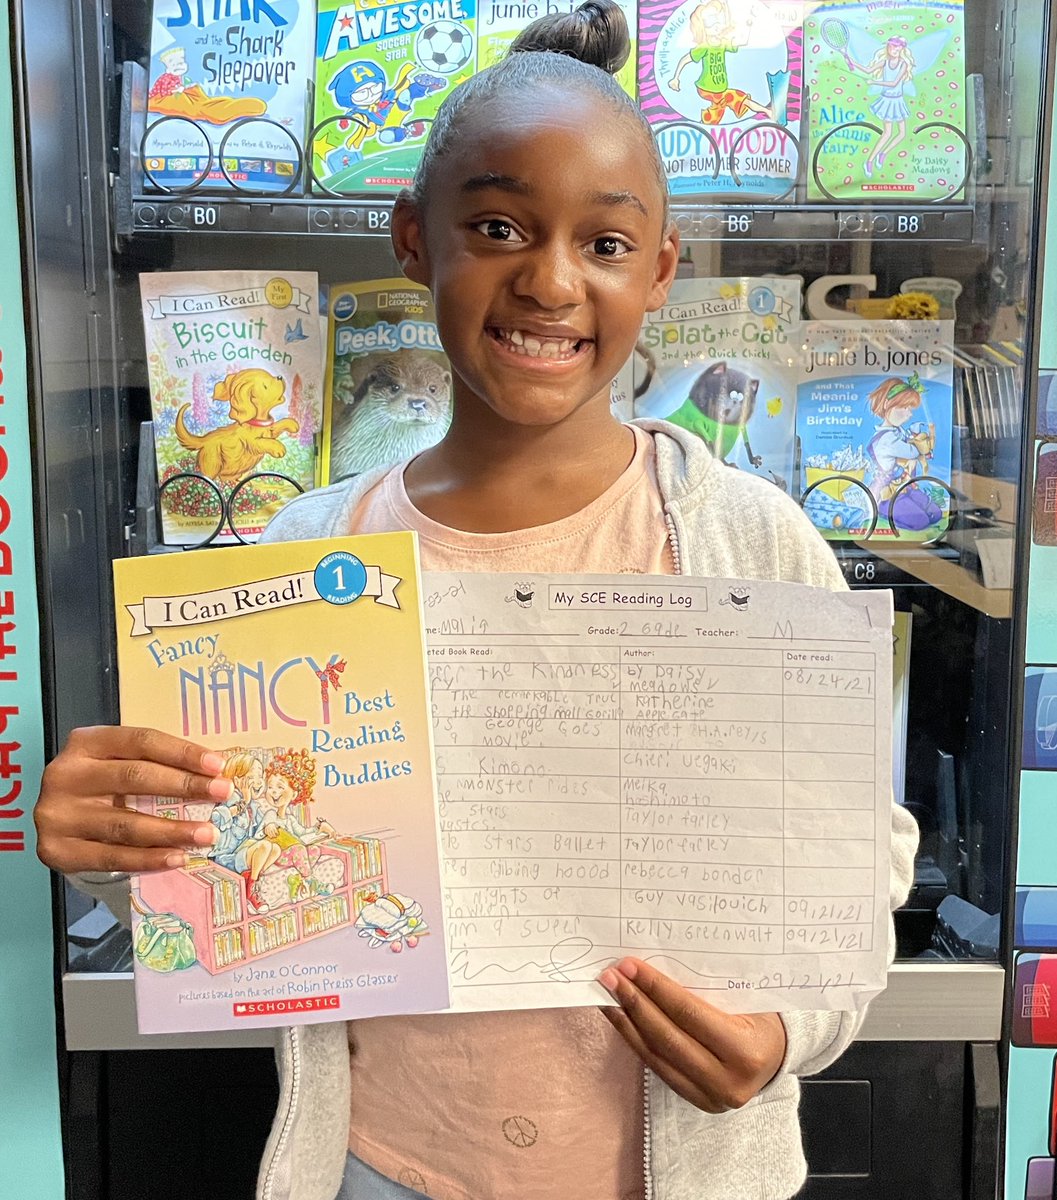 STINK
and the Shark
Sleepover
Megan McDonald
AWESOME
SOCCER
STAR
SCHOLASTIC
junie b. jones
BIG
FOOT
JUDY MOODY
NOT BUMMER SUMMER
illustrated by Peter H. Reynolds
MAGIC
Alice
the Tennis
Fairy
by Daisy
Meadows
SCHOLASTIC
B0
B2
B6
B8
I Can Read!
My
First
Biscuit
in the Garden
SCHOLASTIC
NATIONAL
GEOGRAPHIC
KIDS
Peek, Otte
I Can Read!
1
Splat the Cat
and the Quick Chicks
junie b. jones
and That
Meanie
Jim's
Birthday
SCHOLASTIC
C8
I Can Read!
BEGINNING
1
READING
Fancy
NANCY
Best
Reading
Buddies
by Jane O'Connor
pictures based on the art of Robin Preiss Glasser
SCHOLASTIC
-23-21
My SCE Reading Log
me: Malia Grade: 2 Teacher: M
eted Book Read: Author: Date read:
the Kindness by Daisy 08/24/21
meadows
The remarkable True Katherine
the shopping mall Gorilla Apple gate
George Goes Margret H.A. reyis
a movie.
Kimono Chieri Uegaki
monster rides Meika
hashimoto
stars Taylor farley
Stars Ballet Taylor farley
red hoood rebecca bondor
nights of Guy vasilovich 09/21/21
am a super Kelly Greenwalt 09/21/21
Date: 09/21/21